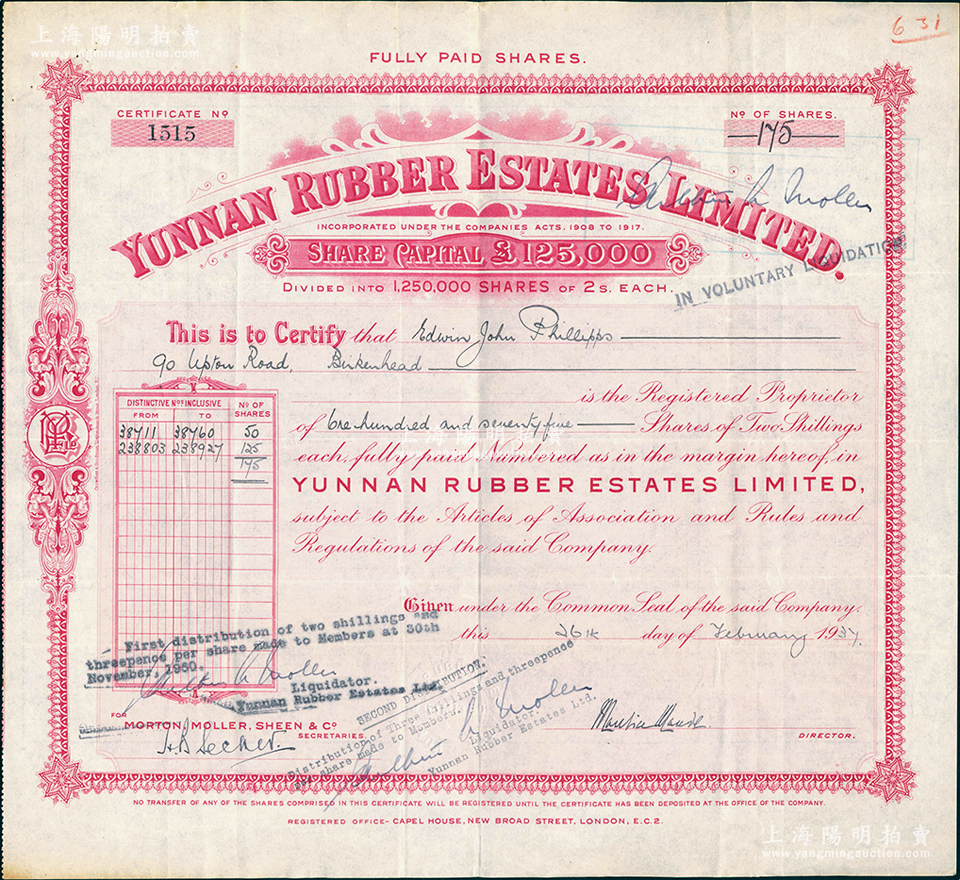 上海陽明拍賣
www.yangmingauction.com
6 31
FULLY PAID SHARES.
CERTIFICATE Nº
1515
Nº OF SHARES.
175
YUNNAN RUBBER ESTATES, LIMITED.
INCORPORATED UNDER THE COMPANIES ACTS, 1908 TO 1917.
SHARE CAPITAL £125,000
DIVIDED INTO 1,250,000 SHARES OF 2S. EACH.
IN VOLUNTARY LIQUIDATION
This is to Certify that Edwin John Phillipps
90 Upton Road, Birkenhead
is the Registered Proprietor
of One hundred and seventy five Shares of Two Shillings
each, fully paid Numbered as in the margin hereof, in
YUNNAN RUBBER ESTATES LIMITED,
subject to the Articles of Association and Rules and
Regulations of the said Company.
DISTINCTIVE Nºs INCLUSIVE
FROM TO
Nº OF SHARES
38711 38760 50
238803 238927 125
175
上海陽明拍賣
Given under the Common Seal of the said Company.
this 26th day of February 1937.
First distribution of two shillings and
threepence per share made to Members at 30th
November, 1950.
Liquidator.
Yunnan Rubber Estates Ltd.
SECOND DISTRIBUTION.
Distribution of Three shillings and threepence
per share made to Members.
Liquidator.
Yunnan Rubber Estates Ltd.
FOR
MORTON, MOLLER, SHEEN & Cº
SECRETARIES.
DIRECTOR.
NO TRANSFER OF ANY OF THE SHARES COMPRISED IN THIS CERTIFICATE WILL BE REGISTERED UNTIL THE CERTIFICATE HAS BEEN DEPOSITED AT THE OFFICE OF THE COMPANY.
REGISTERED OFFICE- CAPEL HOUSE, NEW BROAD STREET, LONDON, E.C.2.
上海陽明拍賣
www.yangmingauction.com